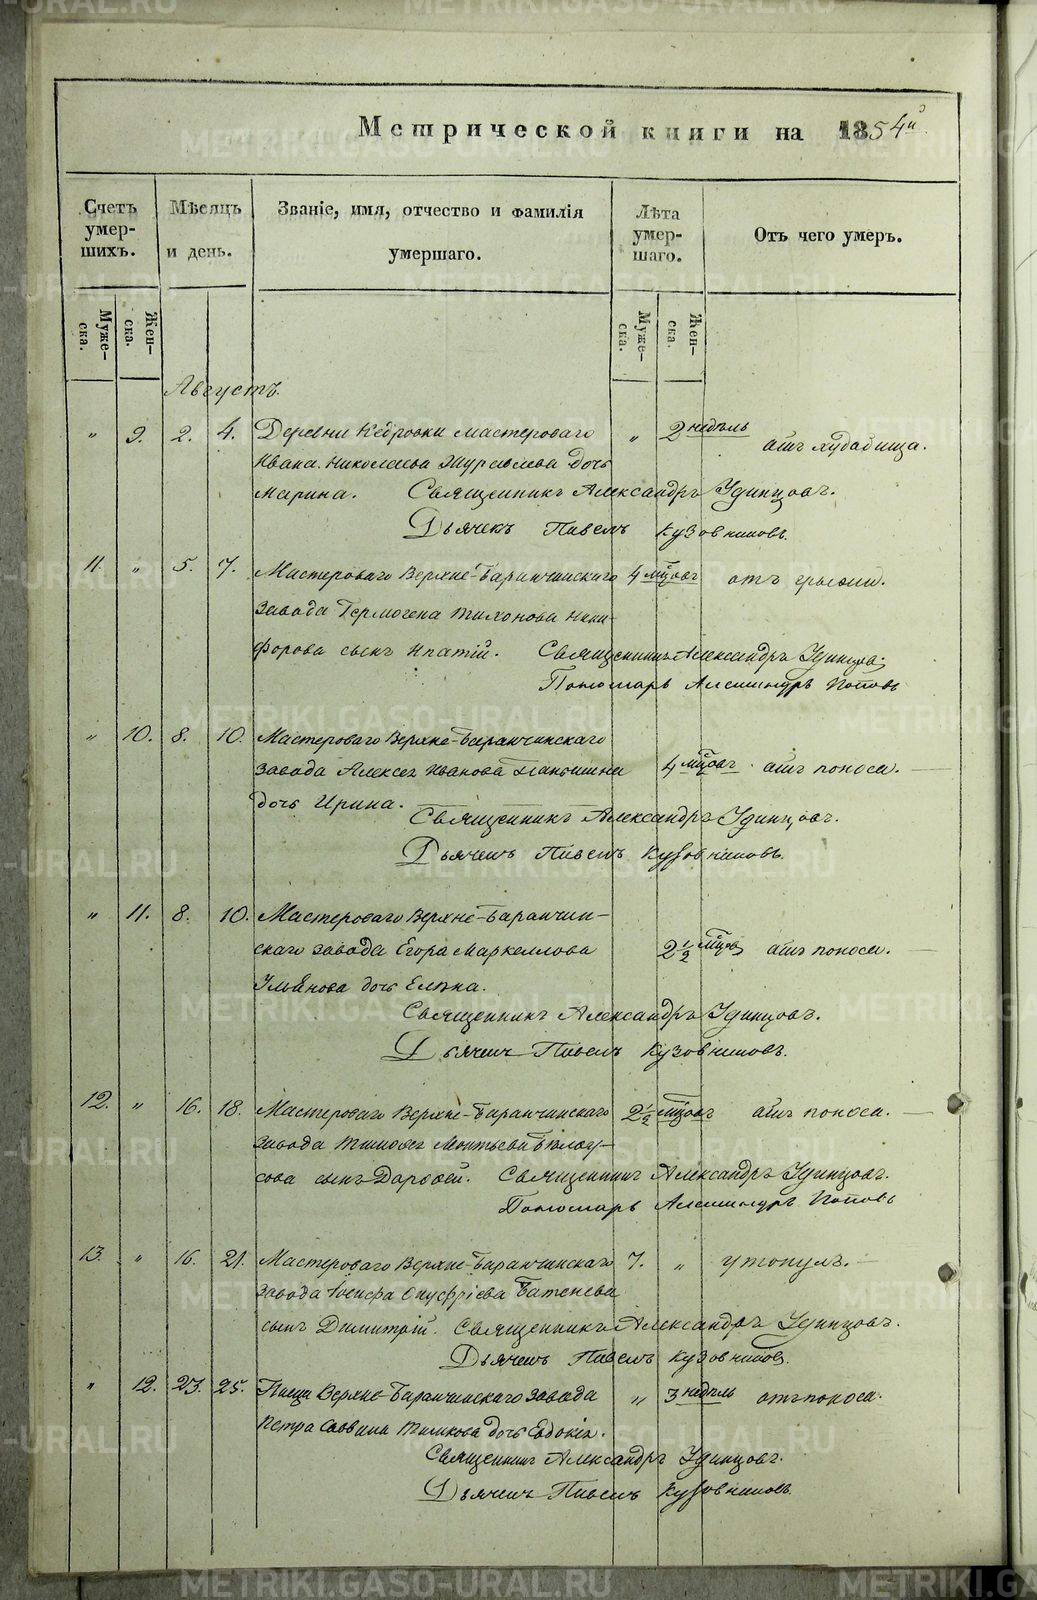 Метрической книги на 1854й.
Счетъ умер-шихъ.
Мѣсяцъ и день.
Званіе, имя, отчество и фамилія умершаго.
Лѣта умер-шаго.
Отъ чего умеръ.
Муже-ска.
Жен-ска.
Муже-ска.
Жен-ска.
Августъ.
" 9. 2. 4. Деревни Кедровки мастероваго " 2 недѣль
Ивана Николаева Журавлева дочь
Марина. Священникъ Александръ Удинцовъ.
Дьячекъ Павелъ Кузовниковъ.
11. " 5. 7. Мастероваго Верхне-Баранчинскаго 4 мцовъ отъ грыжи.
завода Гермогена Тихонова Ники-
форова сынъ Ипатій. Священникъ Александръ Удинцовъ.
Пономарь Александръ Поповъ
" 10. 8. 10. Мастероваго Верхне-Баранчинскаго
завода Алексея Иванова 4 мцовъ. отъ поноса.
дочь Ирина.
Священникъ Александръ Удинцовъ.
Дьячекъ Павелъ Кузовниковъ.
" 11. 8. 10. Мастероваго Верхне-Баранчин-
скаго завода Егора Маркеллова 2 1/2 мцовъ отъ поноса.
дочь Елена.
Священникъ Александръ Удинцовъ.
Дьячекъ Павелъ Кузовниковъ.
12. " 16. 18. Мастероваго Верхне-Баранчинскаго 2 1/2 мцовъ отъ поноса.
завода Тимофея Леонтьева Бѣлоу-
сова сынъ Священникъ Александръ Удинцовъ.
Пономарь Александръ Поповъ
13. " 16. 21. Мастероваго Верхне-Баранчинскаго 7. " утонулъ.
завода Іосифа Онуфріева Батенева
сынъ Димитрій. Священникъ Александръ Удинцовъ.
Дьячекъ Павелъ Кузовниковъ.
" 12. 23. 25. Верхне-Баранчинскаго завода " 3 недѣль отъ поноса.
Петра Саввина дочь Евдокія.
Священникъ Александръ Удинцовъ.
Дьячекъ Павелъ Кузовниковъ.
METRIKI.GASO-URAL.RU